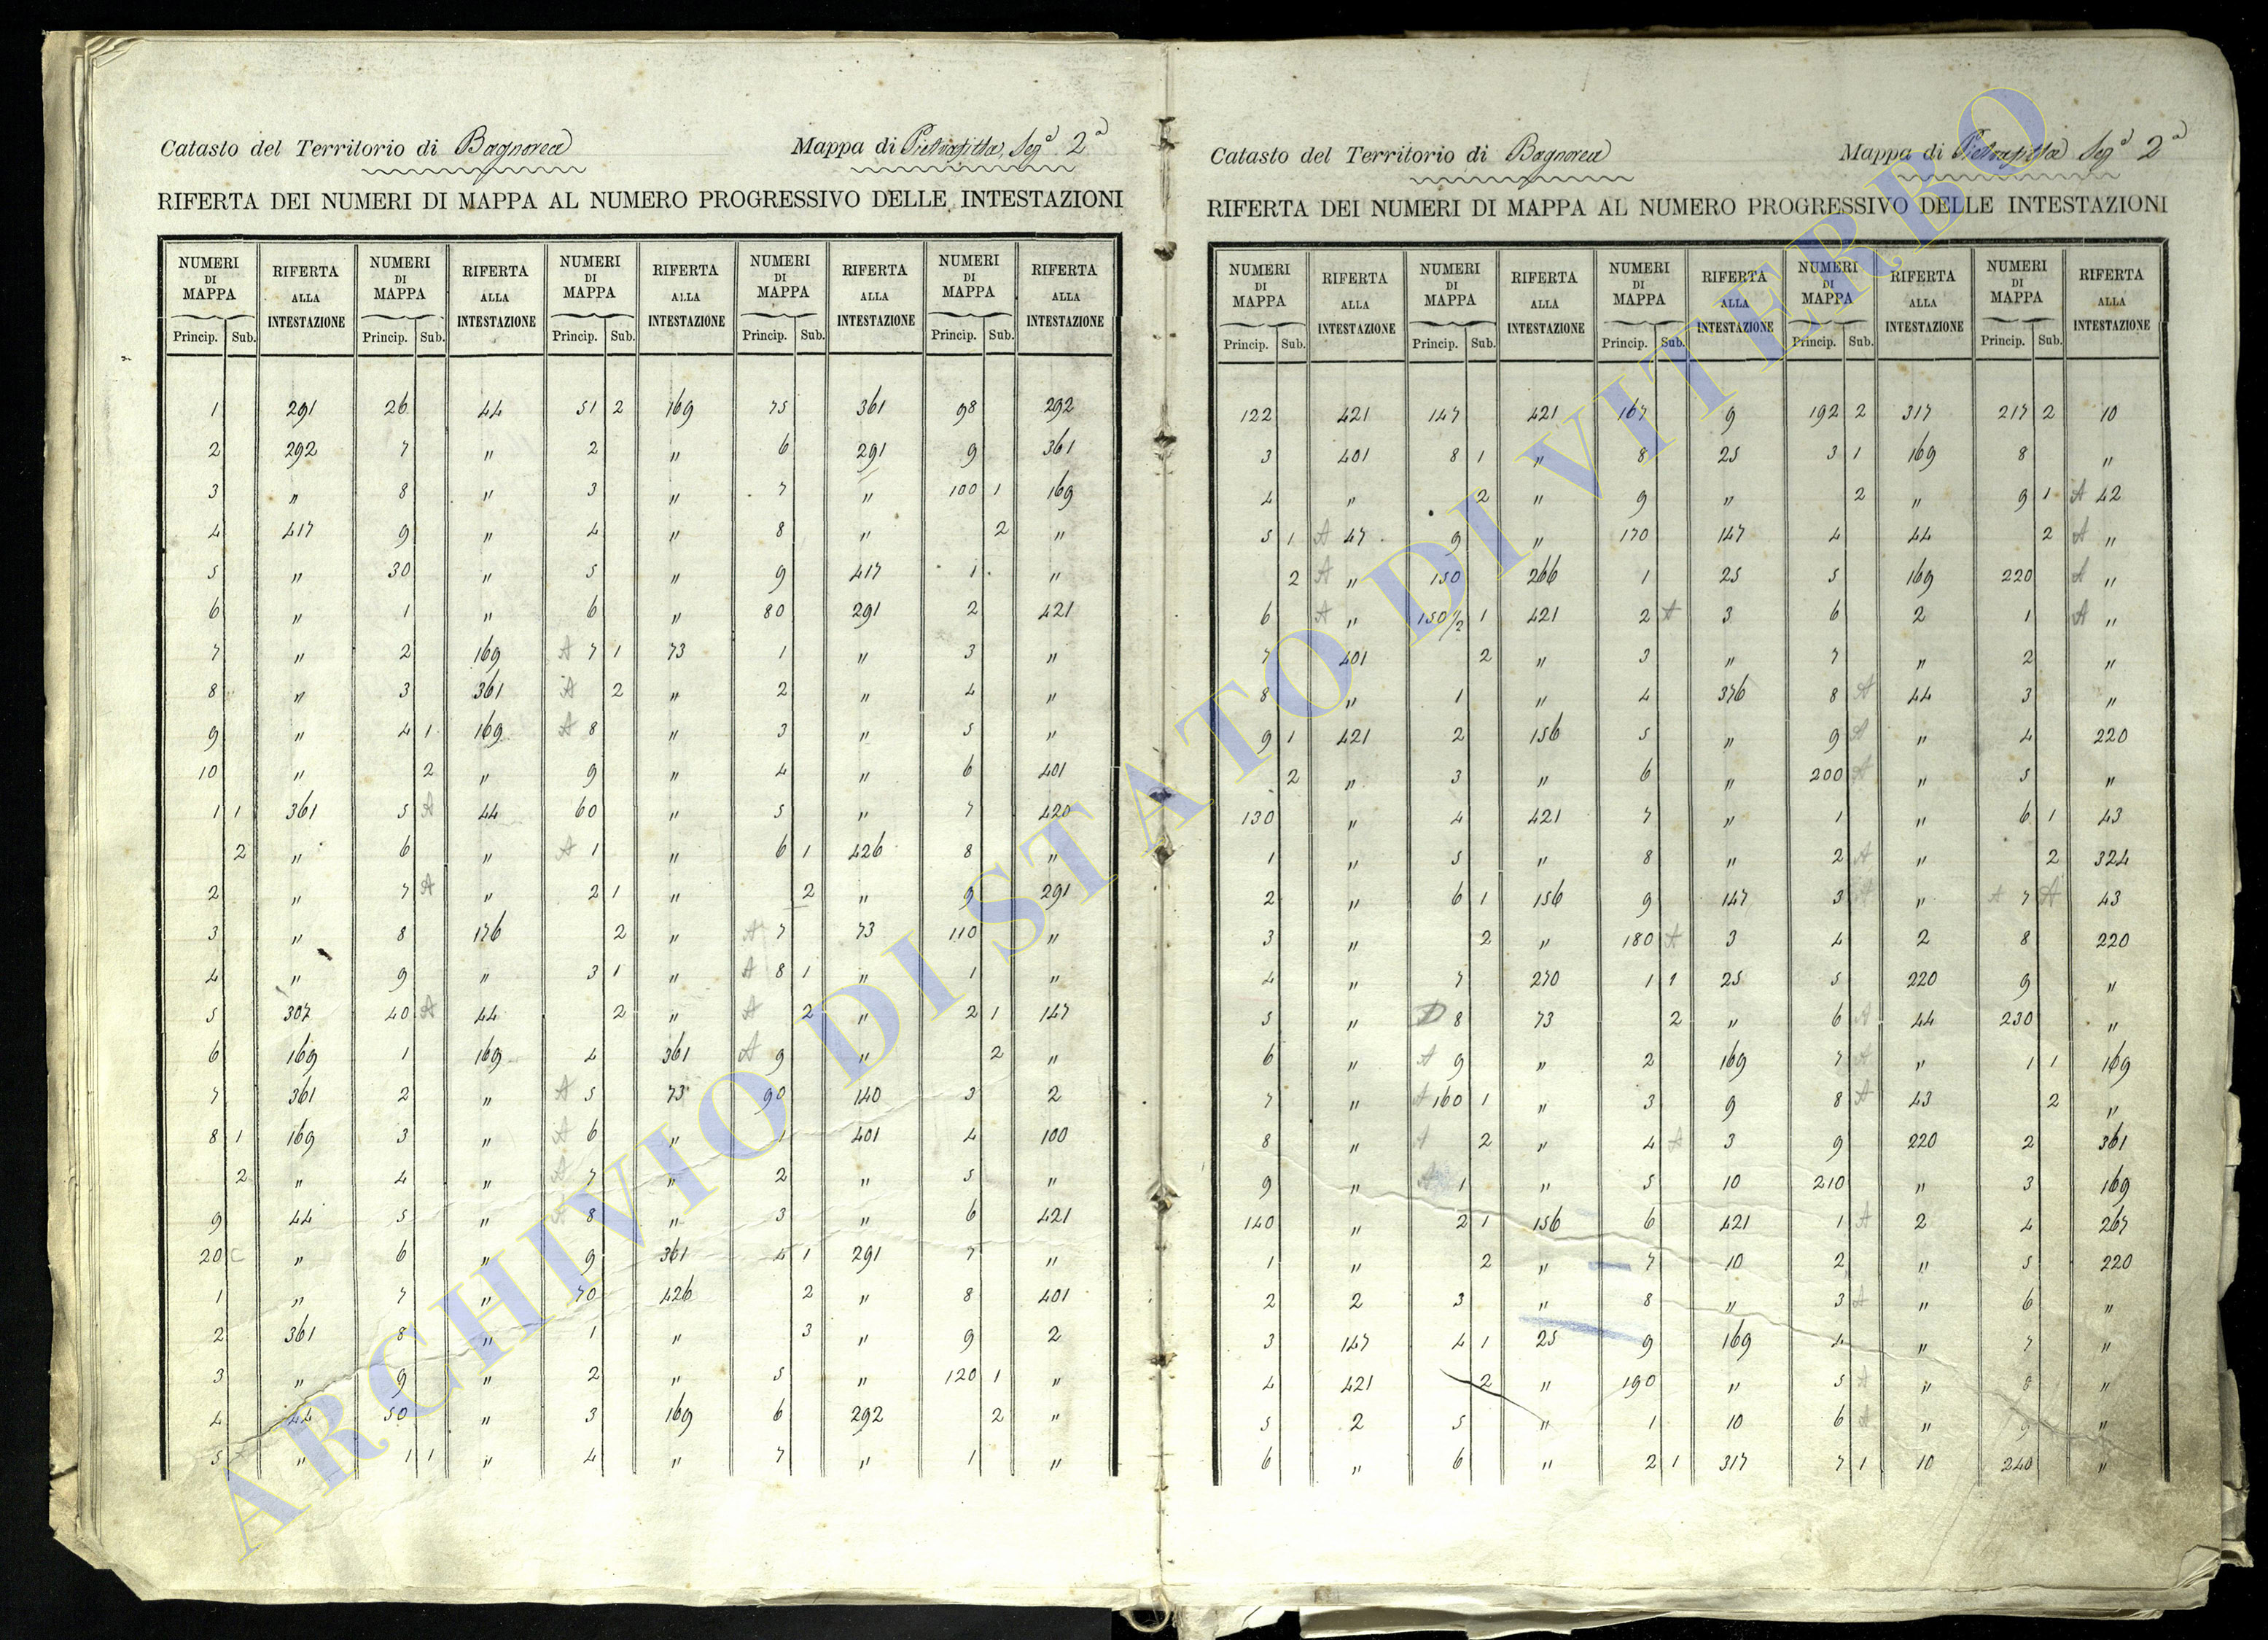 Catasto del Territorio di Bagnorea Mappa di Pietrafitta, Seg.ª 2ª
RIFERTA DEI NUMERI DI MAPPA AL NUMERO PROGRESSIVO DELLE INTESTAZIONI
NUMERI DI MAPPA RIFERTA ALLA INTESTAZIONE NUMERI DI MAPPA RIFERTA ALLA INTESTAZIONE NUMERI DI MAPPA RIFERTA ALLA INTESTAZIONE NUMERI DI MAPPA RIFERTA ALLA INTESTAZIONE NUMERI DI MAPPA RIFERTA ALLA INTESTAZIONE
Princip. Sub. Princip. Sub. Princip. Sub. Princip. Sub. Princip. Sub.
1 291 26 44 51 2 169 75 361 98 292
2 292 7 " 2 " 6 291 9 361
3 " 8 " 3 " 7 " 100 1 169
4 417 9 " 4 " 8 " 2 "
5 " 30 " 5 " 9 417 1 "
6 " 1 " 6 " 80 291 2 421
7 " 2 169 A 7 1 73 1 " 3 "
8 " 3 361 A 2 " 2 " 4 "
9 " 4 1 169 A 8 " 3 " 5 "
10 " 2 " 9 " 4 " 6 401
1 1 361 5 A 44 60 " 5 " 7 420
2 " 6 " A 1 " 6 1 426 8 "
2 " 7 A " 2 1 " 2 " 9 291
3 " 8 176 2 " A 7 73 110 "
4 " 9 " 3 1 " A 8 1 " 1 "
5 307 40 A 44 2 " A 2 " 2 1 147
6 169 1 169 4 361 A 9 " 2 "
7 361 2 " A 5 73 90 140 3 2
8 1 169 3 " A 6 " 1 401 4 100
2 " 4 " A 7 " 2 " 5 "
9 44 5 " 8 " 3 " 6 421
20 C " 6 " 9 361 4 1 291 7 "
1 " 7 " 70 426 2 " 8 401
2 361 8 " 1 " 3 " 9 2
3 " 9 " 2 " 5 " 120 1 "
4 44 50 " 3 169 6 292 2 "
5 " 1 1 " 4 " 7 " 1 "
Catasto del Territorio di Bagnorea Mappa di Pietrafitta Seg.ª 2ª
RIFERTA DEI NUMERI DI MAPPA AL NUMERO PROGRESSIVO DELLE INTESTAZIONI
NUMERI DI MAPPA RIFERTA ALLA INTESTAZIONE NUMERI DI MAPPA RIFERTA ALLA INTESTAZIONE NUMERI DI MAPPA RIFERTA ALLA INTESTAZIONE NUMERI DI MAPPA RIFERTA ALLA INTESTAZIONE NUMERI DI MAPPA RIFERTA ALLA INTESTAZIONE
Princip. Sub. Princip. Sub. Princip. Sub. Princip. Sub. Princip. Sub.
122 421 147 421 167 9 192 2 317 217 2 10
3 401 8 1 " 8 25 3 1 169 8 "
4 " 2 " 9 " 2 " 9 1 A 42
5 1 A 47 9 " 170 147 4 44 2 A "
2 A " 150 266 1 25 5 169 220 A "
6 A " 150 1/2 1 421 2 A 3 6 2 1 A "
7 401 2 " 3 " 7 " 2 "
8 " 1 " 4 376 8 A 44 3 "
9 1 421 2 156 5 " 9 A " 4 220
2 " 3 " 6 " 200 A " 5 "
130 " 4 421 7 " 1 " 6 1 43
1 " 5 " 8 " 2 A " 2 324
2 " 6 1 156 9 147 3 A " A 7 A 43
3 " 2 " 180 A 3 4 2 8 220
4 " 7 270 1 1 25 5 220 9 "
5 " D 8 73 2 " 6 A 44 230 "
6 " A 9 " 2 169 7 A " 1 1 169
7 " A 160 1 " 3 9 8 A 43 2 "
8 " A 2 " 4 A 3 9 220 2 361
9 " A 1 " 5 10 210 " 3 169
140 " 2 1 156 6 421 1 A 2 4 267
1 " 2 " 7 10 2 " 5 220
2 2 3 " 8 " 3 A " 6 "
3 147 4 1 25 9 169 4 " 7 "
4 421 2 " 190 " 5 A " 8 "
5 2 5 " 1 10 6 A " 9 "
6 " 6 " 2 1 317 7 1 10 240 "
ARCHIVIO DI STATO DI VITERBO